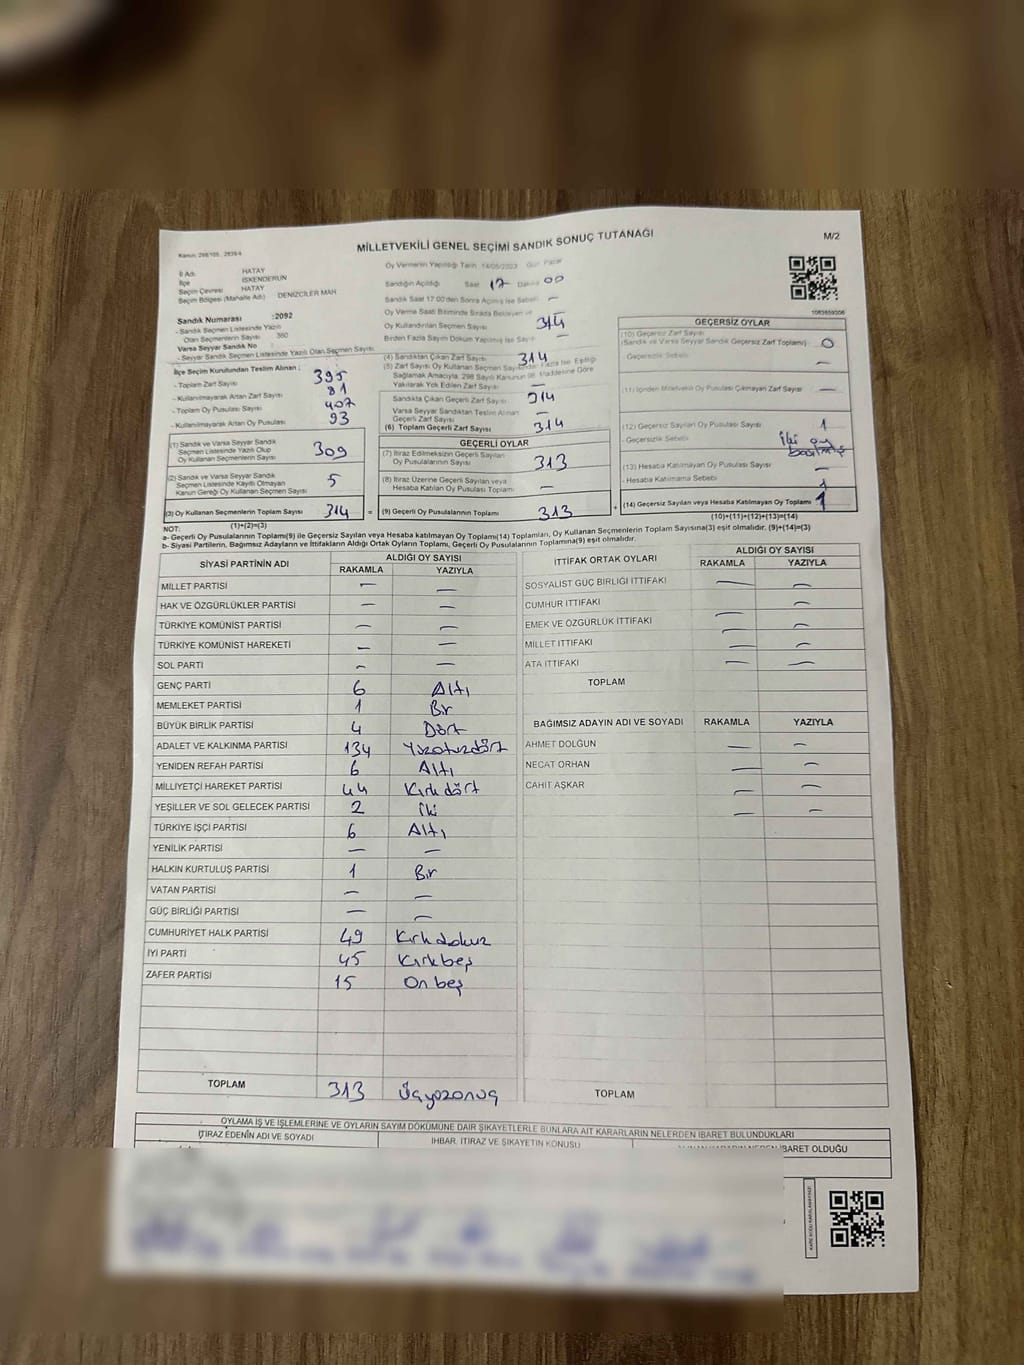 MİLLETVEKİLİ GENEL SEÇİMİ SANDIK SONUÇ TUTANAĞI
M/2
İl Adı HATAY
İlçe İSKENDERUN
Seçim Çevresi HATAY
Seçim Bölgesi (Mahalle Adı) DENİZCİLER MAH
Sandık Numarası :2092
- Sandık Seçmen Listesinde Yazılı
Olan Seçmenlerin Sayısı 360
Varsa Seyyar Sandık No
- Seyyar Sandık Seçmen Listesinde Yazılı Olan Seçmen Sayısı
İlçe Seçim Kurulundan Teslim Alınan ;
- Toplam Zarf Sayısı 395
- Kullanılmayarak Artan Zarf Sayısı 81
- Toplam Oy Pusulası Sayısı 407
- Kullanılmayarak Artan Oy Pusulası 93
(1) Sandık ve Varsa Seyyar Sandık
Seçmen Listesinde Yazılı Olup
Oy Kullanan Seçmenlerin Sayısı 309
(2) Sandık ve Varsa Seyyar Sandık
Seçmen Listesinde Kayıtlı Olmayan
Kanun Gereği Oy Kullanan Seçmen Sayısı 5
(3) Oy Kullanan Seçmenlerin Toplam Sayısı 314 =
(1)+(2)=(3)
Oy Vermenin Yapıldığı Tarih 14/05/2023 Gün Pazar
Sandığın Açıldığı Saat 17 Dakika 00
Sandık Saat 17.00'den Sonra Açılmış İse Sebebi –
Oy Verme Saati Bitiminde Sırada Bekleyen ve
Oy Kullandırılan Seçmen Sayısı 314
Birden Fazla Sayım Döküm Yapılmış İse Sayısı –
(4) Sandıktan Çıkan Zarf Sayısı 314
(5) Zarf Sayısı Oy Kullanan Seçmen Sayısından Fazla İse Eşitliği
Sağlamak Amacıyla; 298 Sayılı Kanunun 98. Maddesine Göre
Yakılarak Yok Edilen Zarf Sayısı –
Sandıkta Çıkan Geçerli Zarf Sayısı 314
Varsa Seyyar Sandıktan Teslim Alınan
Geçerli Zarf Sayısı –
(6) Toplam Geçerli Zarf Sayısı 314
GEÇERLİ OYLAR
(7) İtiraz Edilmeksizin Geçerli Sayılan
Oy Pusulalarının Sayısı 313
(8) İtiraz Üzerine Geçerli Sayılan veya
Hesaba Katılan Oy Pusulası Toplamı –
(9) Geçerli Oy Pusulalarının Toplamı 313 +
GEÇERSİZ OYLAR
(10) Geçersiz Zarf Sayısı
(Sandık ve Varsa Seyyar Sandık Geçersiz Zarf Toplamı) 0
Geçersizlik Sebebi –
(11) İçinden Milletvekili Oy Pusulası Çıkmayan Zarf Sayısı –
(12) Geçersiz Sayılan Oy Pusulası Sayısı 1
- Geçersizlik Sebebi İki oy
basılmış
(13) Hesaba Katılmayan Oy Pusulası Sayısı –
- Hesaba Katılmama Sebebi 1
(14) Geçersiz Sayılan veya Hesaba Katılmayan Oy Toplamı 1
(10)+(11)+(12)+(13)=(14)
NOT:
a- Geçerli Oy Pusulalarının Toplamı(9) ile Geçersiz Sayılan veya Hesaba katılmayan Oy Toplamı(14) Toplamları, Oy Kullanan Seçmenlerin Toplam Sayısına(3) eşit olmalıdır. (9)+(14)=(3)
b- Siyasi Partilerin, Bağımsız Adayların ve İttifakların Aldığı Ortak Oyların Toplamı, Geçerli Oy Pusulalarının Toplamına(9) eşit olmalıdır.
SİYASİ PARTİNİN ADI ALDIĞI OY SAYISI
RAKAMLA YAZIYLA
MİLLET PARTİSİ – –
HAK VE ÖZGÜRLÜKLER PARTİSİ – –
TÜRKİYE KOMÜNİST PARTİSİ – –
TÜRKİYE KOMÜNİST HAREKETİ – –
SOL PARTİ – –
GENÇ PARTİ 6 Altı
MEMLEKET PARTİSİ 1 Bir
BÜYÜK BİRLİK PARTİSİ 4 Dört
ADALET VE KALKINMA PARTİSİ 134 Yüzotuzdört
YENİDEN REFAH PARTİSİ 6 Altı
MİLLİYETÇİ HAREKET PARTİSİ 44 Kırkdört
YEŞİLLER VE SOL GELECEK PARTİSİ 2 İki
TÜRKİYE İŞÇİ PARTİSİ 6 Altı
YENİLİK PARTİSİ – –
HALKIN KURTULUŞ PARTİSİ 1 Bir
VATAN PARTİSİ – –
GÜÇ BİRLİĞİ PARTİSİ – –
CUMHURİYET HALK PARTİSİ 49 Kırkdokuz
İYİ PARTİ 45 Kırkbeş
ZAFER PARTİSİ 15 On beş
TOPLAM 313 Üçyüzonüç
İTTİFAK ORTAK OYLARI ALDIĞI OY SAYISI
RAKAMLA YAZIYLA
SOSYALİST GÜÇ BİRLİĞİ İTTİFAKI – –
CUMHUR İTTİFAKI –
EMEK VE ÖZGÜRLÜK İTTİFAKI – –
MİLLET İTTİFAKI – –
ATA İTTİFAKI – –
TOPLAM
BAĞIMSIZ ADAYIN ADI VE SOYADI RAKAMLA YAZIYLA
AHMET DOLĞUN – –
NECAT ORHAN – –
CAHİT AŞKAR – –
TOPLAM
OYLAMA İŞ VE İŞLEMLERİNE VE OYLARIN SAYIM DÖKÜMÜNE DAİR ŞİKAYETLERLE BUNLARA AİT KARARLARIN NELERDEN İBARET BULUNDUKLARI
İTİRAZ EDENİN ADI VE SOYADI İHBAR, İTİRAZ VE ŞİKAYETİN KONUSU İBARET OLDUĞU